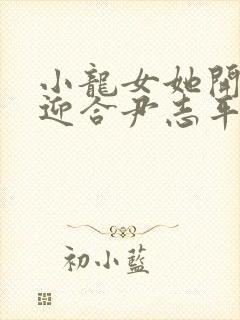 小龍女她開
迎合尹志平
初小藍